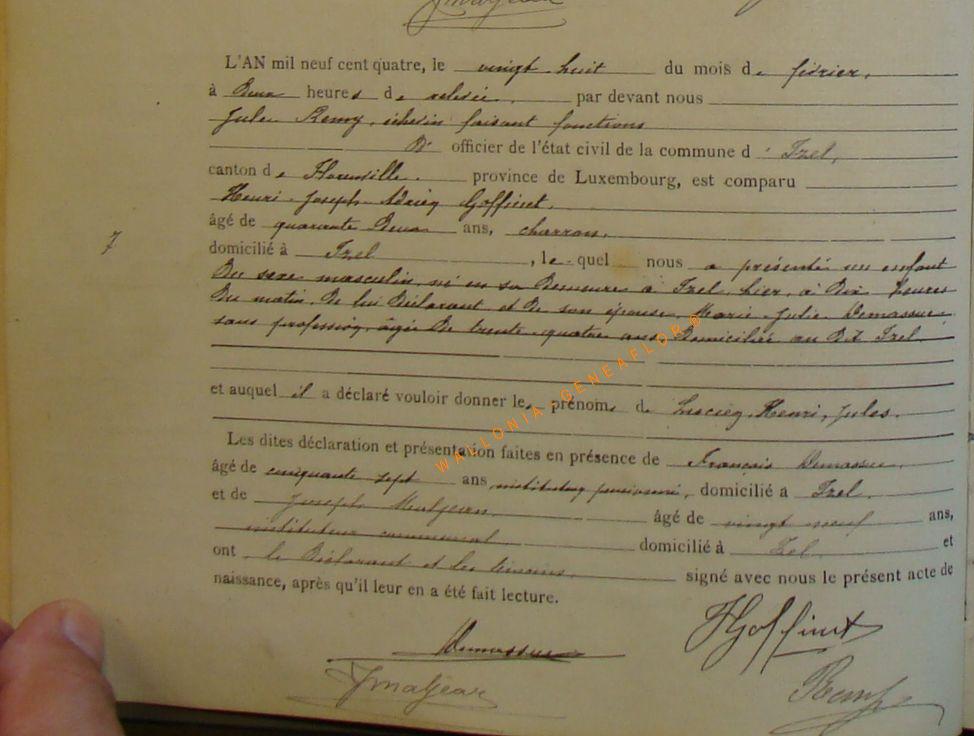 L'AN mil neuf cent quatre, le vingt huit du mois de février,
à deux heures de relevée. par devant nous
Jules Remy, échevin faisant fonctions
d' officier de l'état civil de la commune d' Izel,
canton de Florenville. province de Luxembourg, est comparu
Henri Joseph Goffinet,
âgé de quarante deux ans, charron,
7
domicilié à Izel , lequel nous a présenté un enfant
du sexe masculin, né en sa demeure à Izel, hier, à dix heures
du matin, de lui déclarant et de son épouse, Marie-Julie Demassue,
sans profession, âgée de trente-quatre ans, domiciliée au dt Izel.
et auquel il a déclaré vouloir donner les prénoms de Lucien, Henri, Jules.
Les dites déclaration et présentation faites en présence de François Demassue,
âgé de cinquante sept ans, instituteur pensionné, domicilié à Izel.
et de Joseph âgé de vingt neuf ans,
instituteur communal domicilié à Izel et
ont le déclarant et les témoins, signé avec nous le présent acte de
naissance, après qu'il leur en a été fait lecture.
HGoffinet
Demassue
Remy
WALLONIA - GENEAFLOR ©